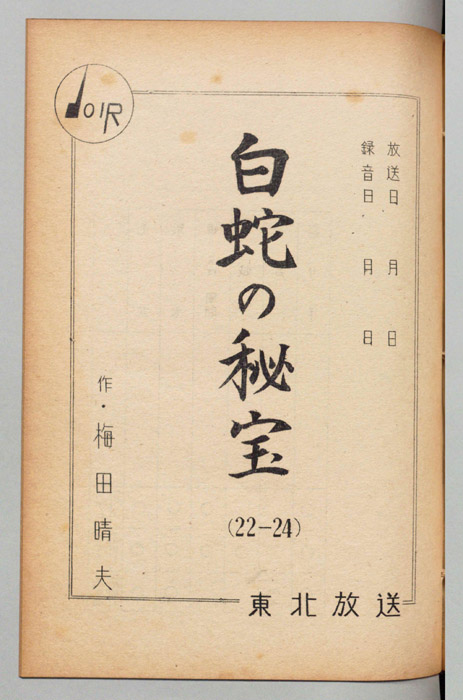 JOIR
放送日　月　日
録音日　月　日
白蛇の秘宝
(22-24)
作・梅田晴夫
東北放送